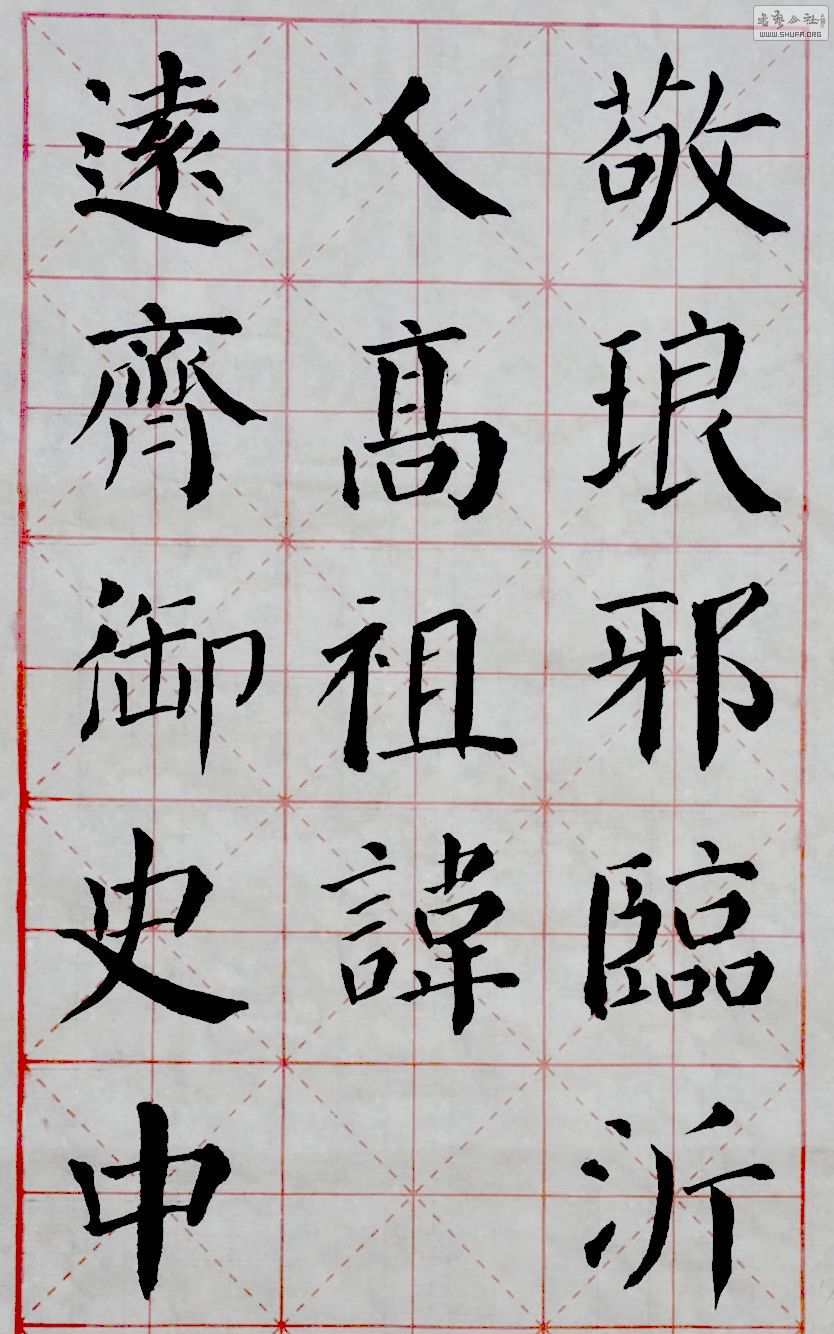 敬琅邪臨沂
人高祖諱
遠齊御史中
WWW.SHUFA.ORG